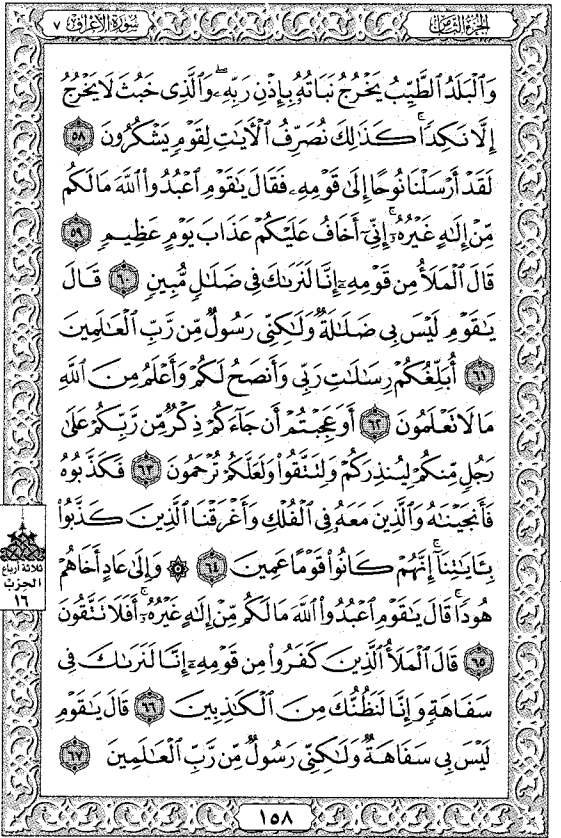 الجزء الثامن
سورة الأعراف ٧
وَٱلۡبَلَدُ ٱلطَّيِّبُ يَخۡرُجُ نَبَاتُهُۥ بِإِذۡنِ رَبِّهِۦۖ وَٱلَّذِى خَبُثَ لَا يَخۡرُجُ
إِلَّا نَكِدٗاۚ كَذَٰلِكَ نُصَرِّفُ ٱلۡأٓيَٰتِ لِقَوۡمٖ يَشۡكُرُونَ ٥٨
لَقَدۡ أَرۡسَلۡنَا نُوحًا إِلَىٰ قَوۡمِهِۦ فَقَالَ يَٰقَوۡمِ ٱعۡبُدُواْ ٱللَّهَ مَا لَكُم
مِّنۡ إِلَٰهٍ غَيۡرُهُۥٓۚ إِنِّىٓ أَخَافُ عَلَيۡكُمۡ عَذَابَ يَوۡمٍ عَظِيمٖ ٥٩
قَالَ ٱلۡمَلَأُ مِن قَوۡمِهِۦٓ إِنَّا لَنَرَىٰكَ فِى ضَلَٰلٖ مُّبِينٖ ٦٠ قَالَ
يَٰقَوۡمِ لَيۡسَ بِى ضَلَٰلَةٞ وَلَٰكِنِّى رَسُولٞ مِّن رَّبِّ ٱلۡعَٰلَمِينَ
٦١ أُبَلِّغُكُمۡ رِسَٰلَٰتِ رَبِّى وَأَنصَحُ لَكُمۡ وَأَعۡلَمُ مِنَ ٱللَّهِ
مَا لَا تَعۡلَمُونَ ٦٢ أَوَعَجِبۡتُمۡ أَن جَآءَكُمۡ ذِكۡرٞ مِّن رَّبِّكُمۡ عَلَىٰ
رَجُلٖ مِّنكُمۡ لِيُنذِرَكُمۡ وَلِتَتَّقُواْ وَلَعَلَّكُمۡ تُرۡحَمُونَ ٦٣ فَكَذَّبُوهُ
فَأَنجَيۡنَٰهُ وَٱلَّذِينَ مَعَهُۥ فِى ٱلۡفُلۡكِ وَأَغۡرَقۡنَا ٱلَّذِينَ كَذَّبُواْ
بِـَٔايَٰتِنَآۚ إِنَّهُمۡ كَانُواْ قَوۡمًا عَمِينَ ٦٤ ۞ وَإِلَىٰ عَادٍ أَخَاهُمۡ
هُودٗاۚ قَالَ يَٰقَوۡمِ ٱعۡبُدُواْ ٱللَّهَ مَا لَكُم مِّنۡ إِلَٰهٍ غَيۡرُهُۥٓۚ أَفَلَا تَتَّقُونَ
٦٥ قَالَ ٱلۡمَلَأُ ٱلَّذِينَ كَفَرُواْ مِن قَوۡمِهِۦٓ إِنَّا لَنَرَىٰكَ فِى
سَفَاهَةٖ وَإِنَّا لَنَظُنُّكَ مِنَ ٱلۡكَٰذِبِينَ ٦٦ قَالَ يَٰقَوۡمِ
لَيۡسَ بِى سَفَاهَةٞ وَلَٰكِنِّى رَسُولٞ مِّن رَّبِّ ٱلۡعَٰلَمِينَ ٦٧
ثلاثة أرباع
الحزب
١٦
١٥٨